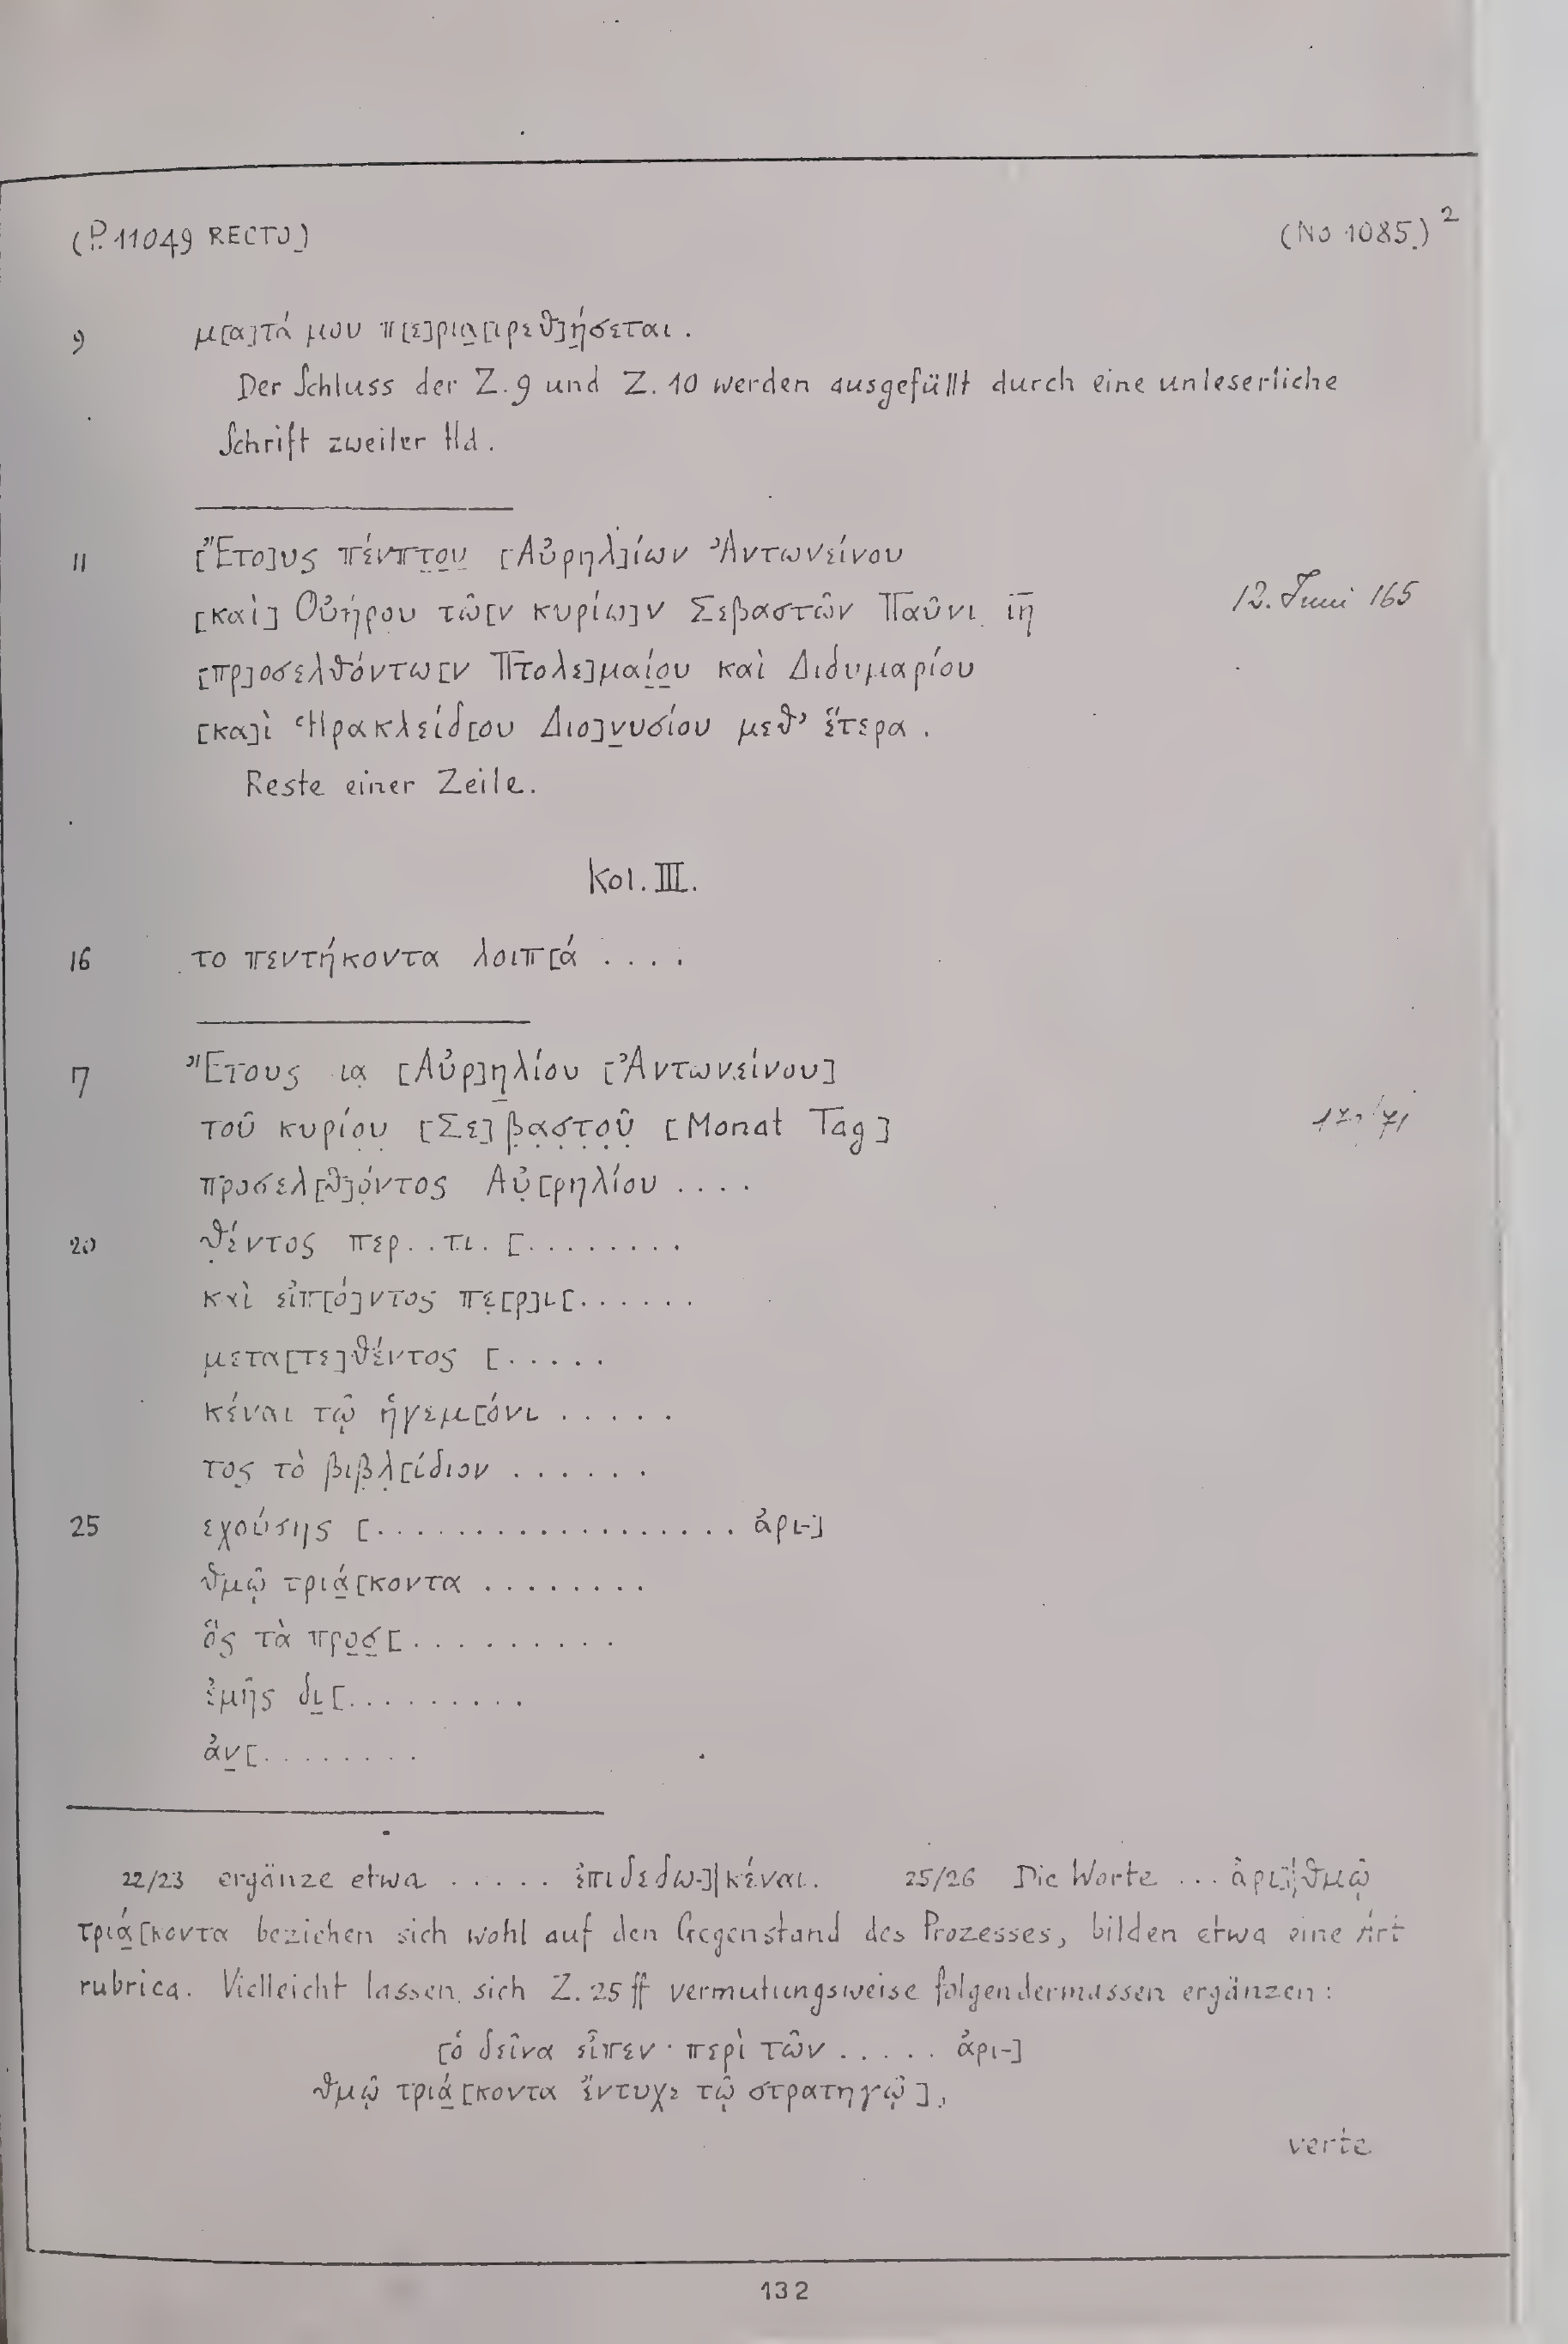 (P. 11049 RECTO)
(No 1085.) 2
9 μ[α]τά μου π[ε]ρια[ιρεθ]ήσεται.
Der Schluss der Z. 9 und Z. 10 werden ausgefüllt durch eine unleserliche
Schrift zweiter Hd.
11 [Ἔτο]υς πένπτου [Αὐρηλ]ίων Ἀντωνείνου
[καὶ] Οὐήρου τῶ[ν κυρίω]ν Σεβαστῶν Παῦνι ιη
12. Juni 165
[πρ]οσελθόντω[ν Πτολε]μαίου καὶ Διδυμαρίου
[κα]ὶ Ἡρακλείδ[ου Διο]νυσίου μεθ' ἕτερα.
Reste einer Zeile.
Kol. III.
16 το πεντήκοντα λοιπ[ά ....
7 Ἔτους ια [Αὐρ]ηλίου [Ἀντωνείνου]
τοῦ κυρίου [Σε]βαστοῦ [Monat Tag]
προσελ[θ]όντος Αὐ[ρηλίου ....
20 θέντος περ..τι. [........
καὶ εἰπ[ό]ντος πε[ρ]ι[......
μετα[τε]θέντος [.....
κέναι τῷ ἡγεμ[όνι .....
τος τὸ βιβλ[είδιον ......
25 εχούσης [.................. ἀρι-]
θμῷ τριά[κοντα ........
ὃς τὰ προσ[..........
ἐμῆς δι[.........
ἀν[........
22/23 ergänze etwa ..... ἐπιδεδω-]|κέναι. 25/26 Die Worte ... ἀρι]|θμῷ
τριά[κοντα beziehen sich wohl auf den Gegenstand des Prozesses, bilden etwa eine Art
rubrica. Vielleicht lassen sich Z. 25 ff vermutungsweise folgendermassen ergänzen:
[ὁ δεῖνα εἶπεν · περὶ τῶν ..... ἀρι-]
θμῷ τριά[κοντα ἔντυχε τῷ στρατηγῷ],
verte
132